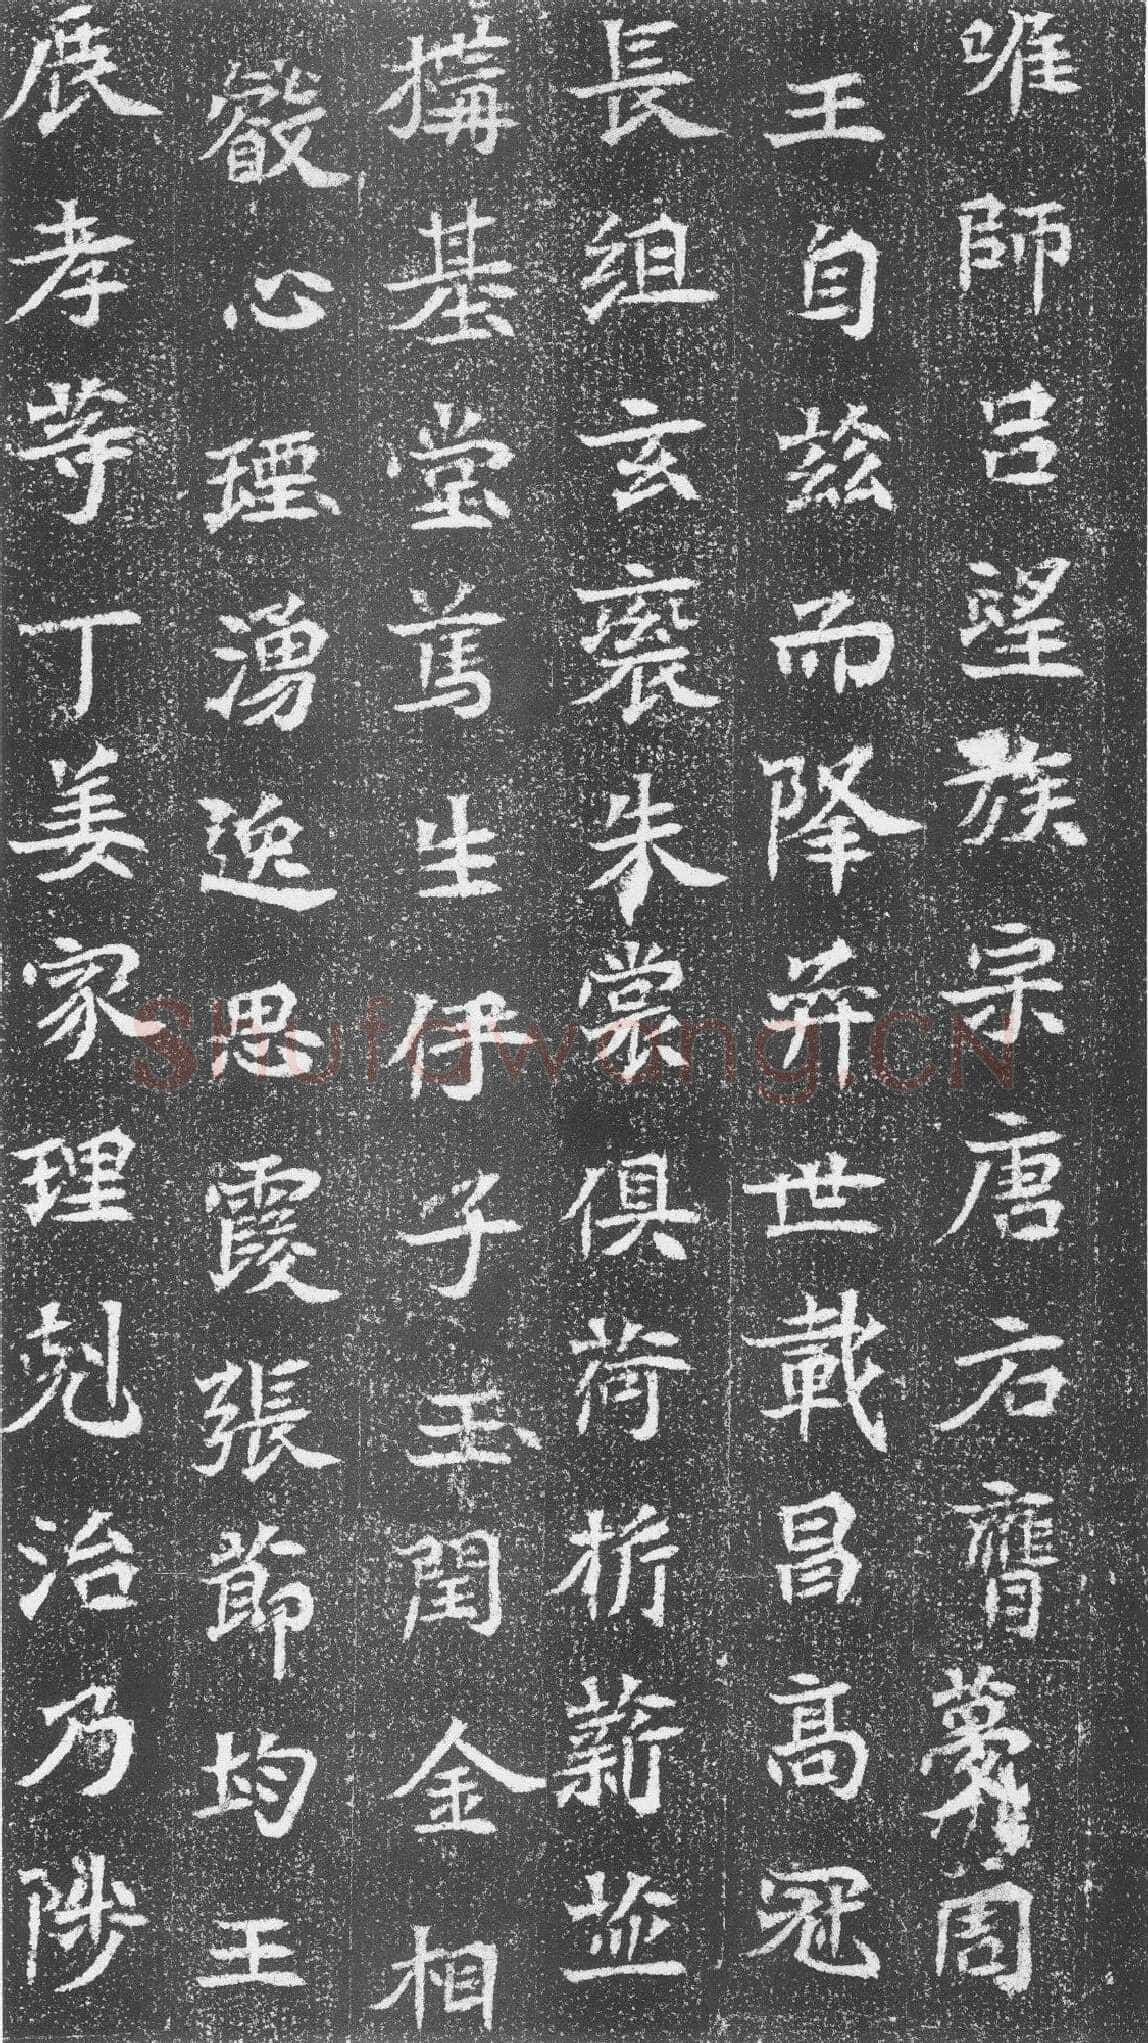 唯師呂望族宗唐右膺夢周
王自茲而降弈世載昌高冠
長組玄袞朱裳俱荷析薪並
構基堂篤生伊子玉閏金相
叡心堙湧逸思霞張節均王
展孝等丁姜家理剋治乃陟
Shufawang.CN